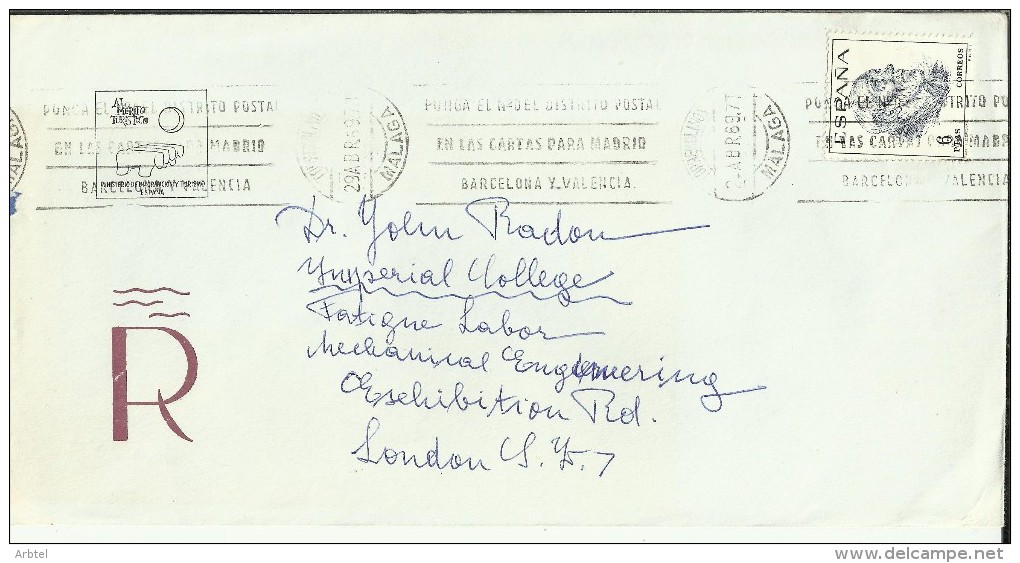 AL
MERITO
TURISTICO
MINISTERIO DE INFORMACION Y TURISMO
ESPAÑA
PONGA EL Nº DEL DISTRITO POSTAL
EN LAS CARTAS PARA MADRID
BARCELONA Y VALENCIA
29 ABR 69.7T
MALAGA
PONGA EL Nº DEL DISTRITO POSTAL
EN LAS CARTAS PARA MADRID
BARCELONA Y VALENCIA.
ABR 69.7T
MALAGA
PONGA EL Nº DEL DISTRITO PO
EN LAS CARTAS PARA MADR
BARCELONA Y VALENCIA
ESPAÑA
CORREOS
6
PTAS
Dr. John Radon
Imperial College
Fatigue Labor
Mechanical Engineering
Exhibition Rd.
London S.W. 7
R
Arbtel
www.delcampe.net